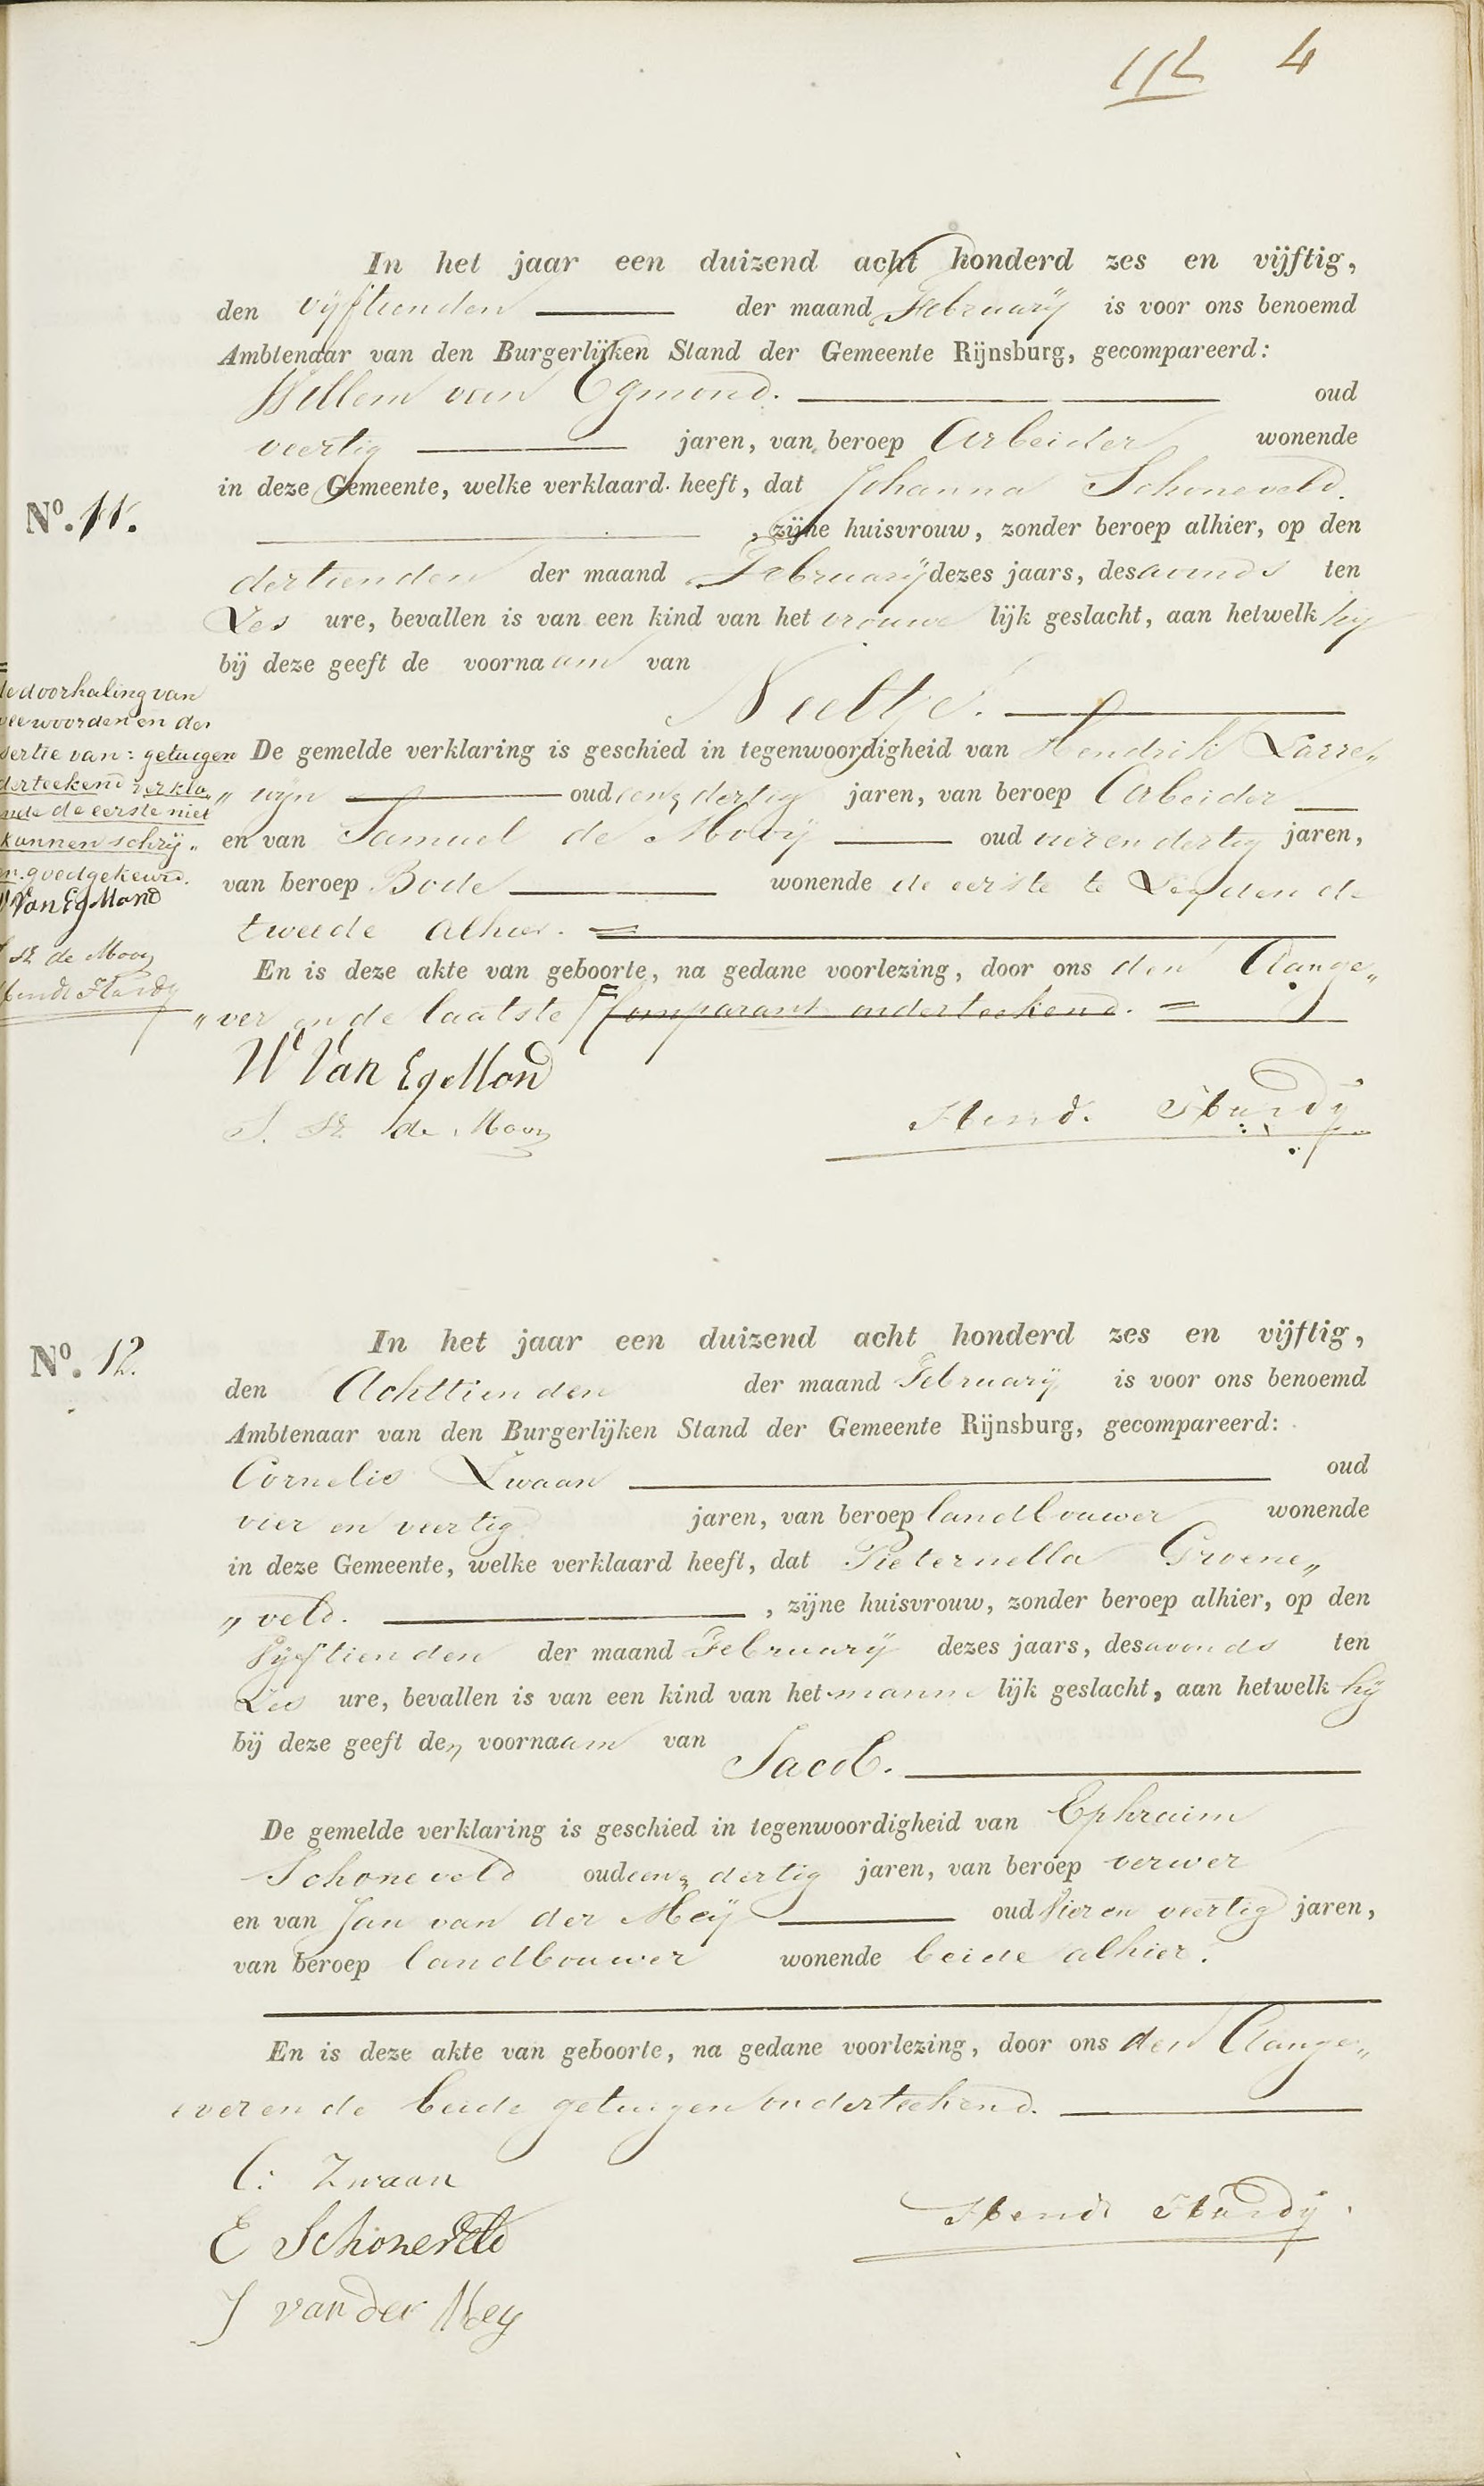 4
In het jaar een duizend acht honderd zes en vijftig,
den vijftienden der maand Februarij is voor ons benoemd
Ambtenaar van den Burgerlijken Stand der Gemeente Rijnsburg, gecompareerd:
Willem van Egmond. oud
veertig jaren, van beroep Arbeider wonende
in deze Gemeente, welke verklaard heeft, dat Johanna Schoneveld.
No. 11.
, zijne huisvrouw, zonder beroep alhier, op den
dertienden der maand Februarij dezes jaars, des avonds ten
Zes ure, bevallen is van een kind van het vrouwe lijk geslacht, aan hetwelk hij
bij deze geeft de voornaam van
Neeltje.
De gemelde verklaring is geschied in tegenwoordigheid van Hendrik Larre„
„ wijn oud een & dertig jaren, van beroep Arbeider
en van Samuel de Mooij oud vier en dertig jaren,
van beroep Bode wonende de eerste te Leyden de
tweede alhier.
En is deze akte van geboorte, na gedane voorlezing, door ons den Aange„
„ ver en de laatste Comparant onderteekend.
doorhaling van
woorden en de
sertie van: getuigen
derteekend verkla„
de eerste niet
kunnen schrij„
n. goedgekeurd.
W Van EgMond
de Mooy
Hend Hardy
W Van EgMond
S. Sz de Mooy
Hend. Hardy
No. 12.
In het jaar een duizend acht honderd zes en vijftig,
den Achttienden der maand Februarij is voor ons benoemd
Ambtenaar van den Burgerlijken Stand der Gemeente Rijnsburg, gecompareerd:
Cornelis Zwaan oud
vier en veertig jaren, van beroep landbouwer wonende
in deze Gemeente, welke verklaard heeft, dat Pieternella Groene„
„ veld. , zijne huisvrouw, zonder beroep alhier, op den
Vijftienden der maand Februarij dezes jaars, des avonds ten
Zes ure, bevallen is van een kind van het manne lijk geslacht, aan hetwelk hij
bij deze geeft den voornaam van
Jacob.
De gemelde verklaring is geschied in tegenwoordigheid van Ephraim
Schoneveld oud een & dertig jaren, van beroep verwer
en van Jan van der Meij oud Vier en veertig jaren,
van beroep landbouwer wonende beide alhier.
En is deze akte van geboorte, na gedane voorlezing, door ons den Aange„
„ver en de beide getuigen onderteekend.
C: Zwaan
E Schoneveld
J van der Mey
Hend Hardy.